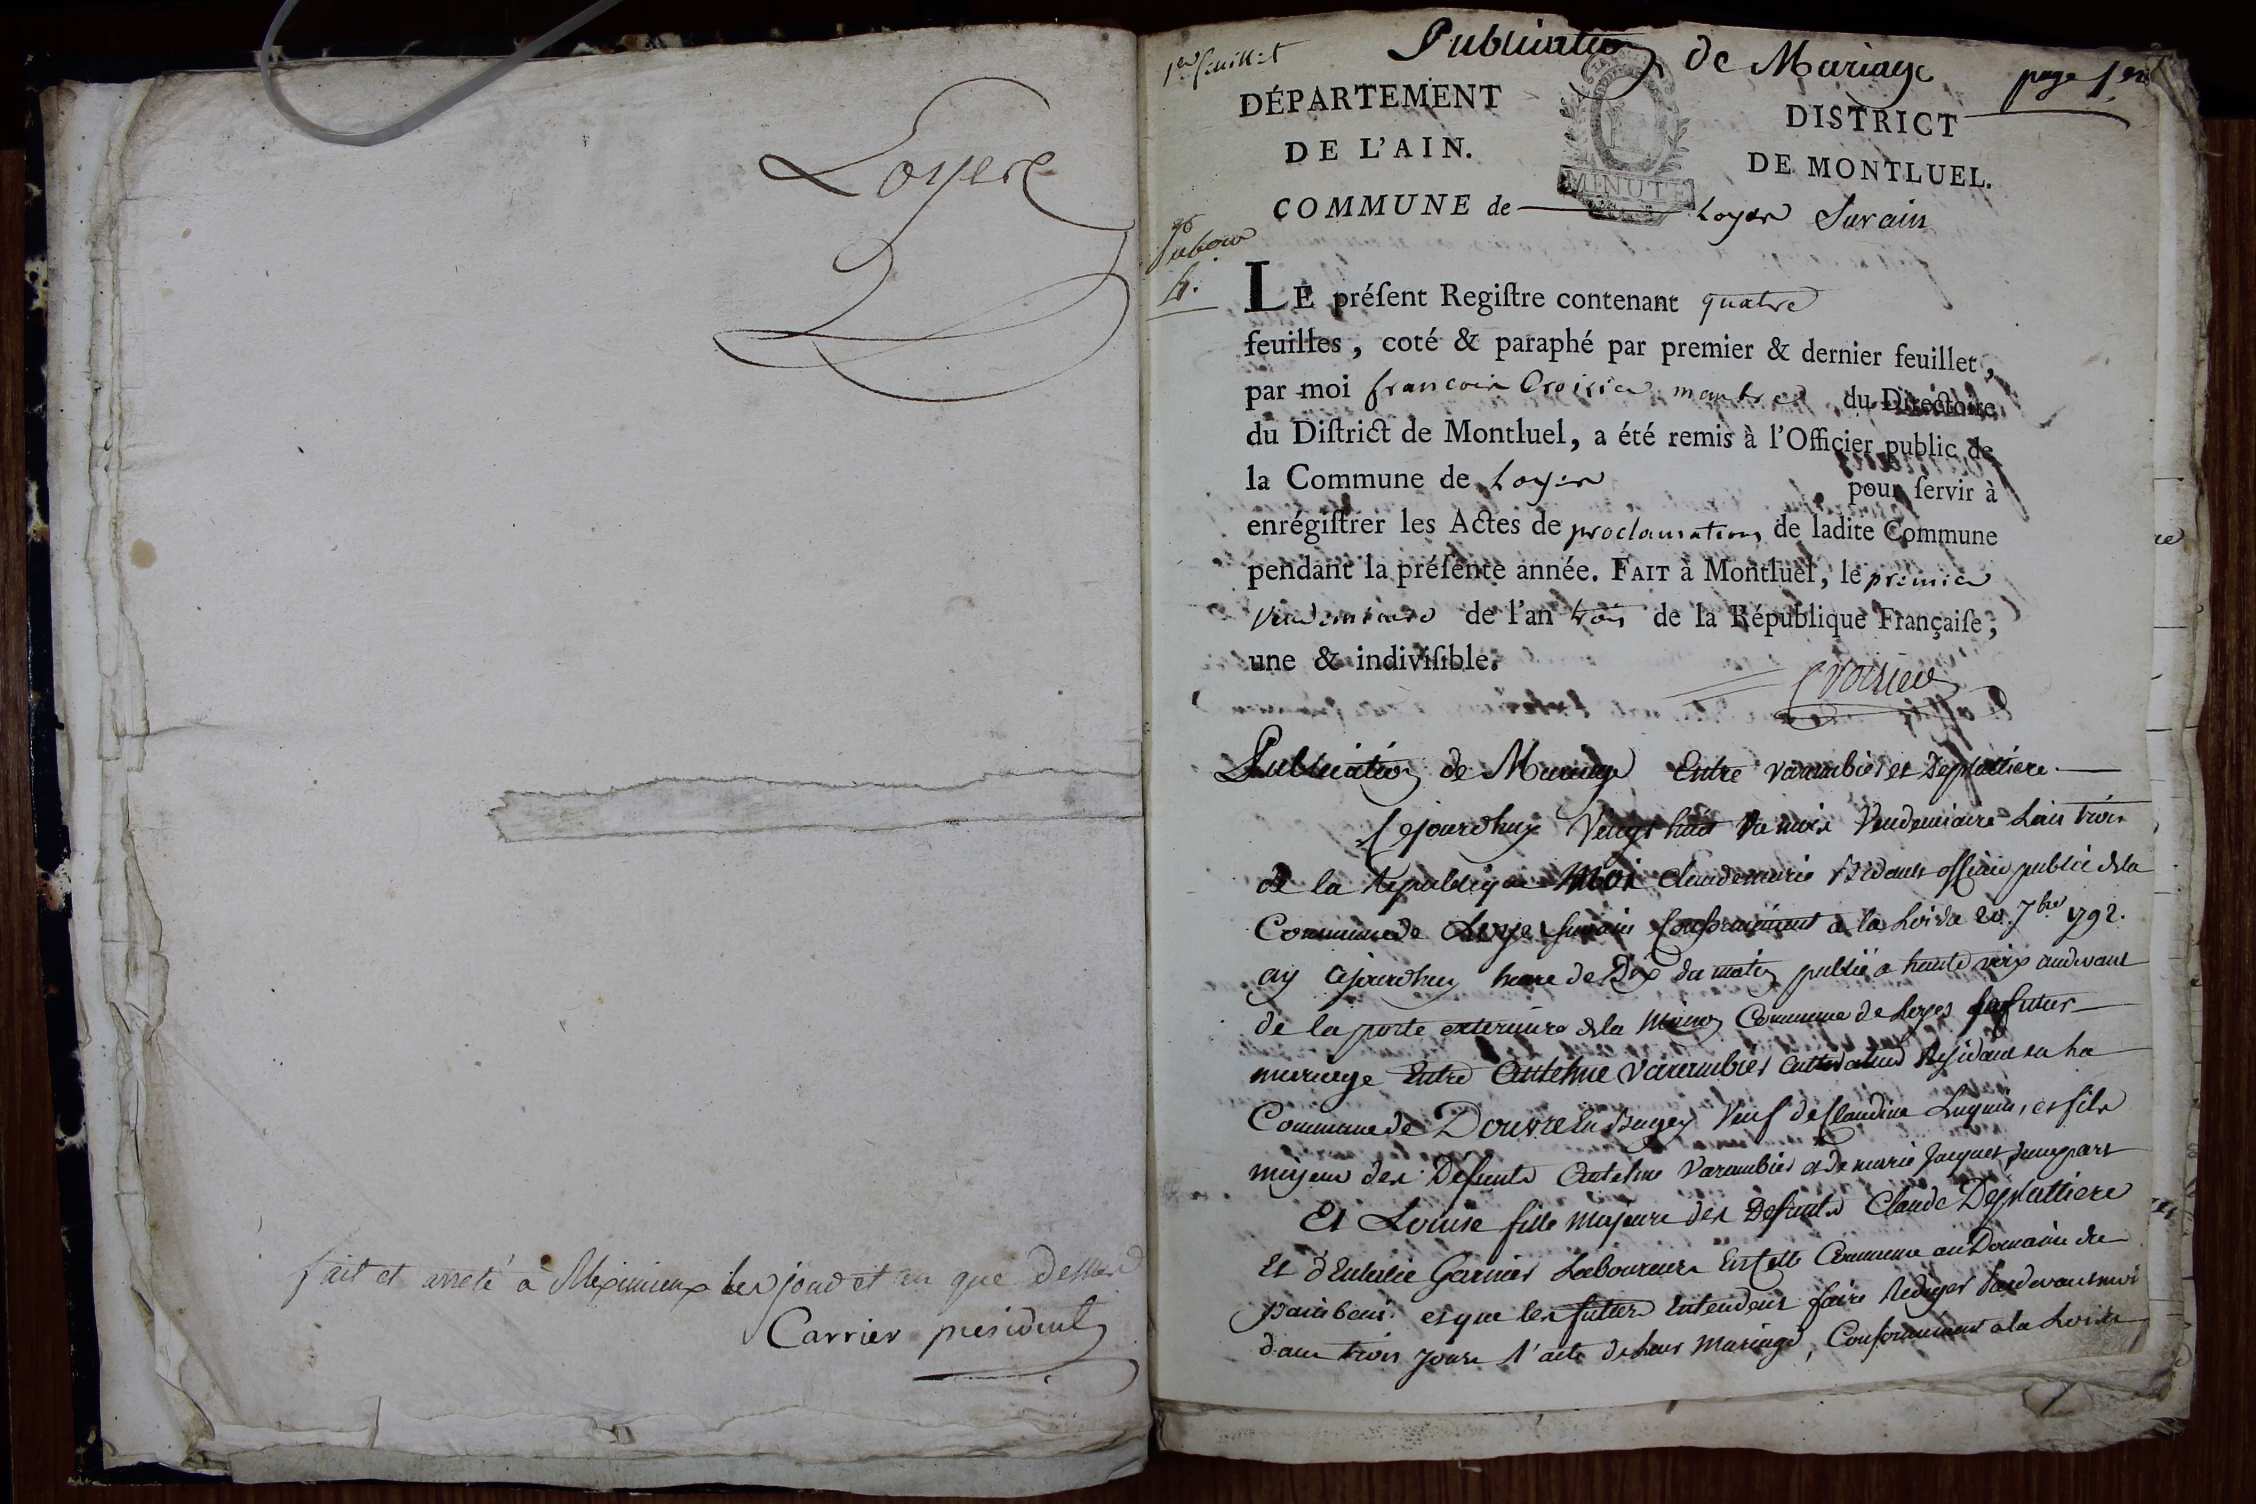 Loyes
fait et arreté à Meximieux les jour et an que dessus
Carrier président
1er feuillet
Publication de Mariage
page 1ere
DÉPARTEMENT
DE L'AIN.
DISTRICT
DE MONTLUEL.
MINUTE
COMMUNE de Loyes Surain
LE préſent Regiſtre contenant quatre
feuilles, coté & paraphé par premier & dernier feuillet,
par moi francois Croisier membre du Directoire
du Diſtrict de Montluel, a été remis à l'Officier public de
la Commune de Loyes pour ſervir à
enrégiſtrer les Actes de proclamations de ladite Commune
pendant la préſente année. FAIT à Montluel, le premier
Vendemiaire de l'an trois de la République Françaiſe,
une & indiviſible.
Croisier
Publication de Mariage Entre Varambier et Deplattiere.
Cejourdhuy Vingt huit du mois Vendemiaire Lan trois
de la République Moi Claudemarie Bidault officier public dela
Commune de Loyes surain Conformément a la Loi du 20. 7bre 1792.
ay cejourdhuy heure de Dix du matin publié a haute voix audevant
de la porte exterieure dela Maison Commune de Loyes futur
mariage Entre Antelme Varambier Cultivateur Residant en La
Commune de Douvre En Bugey Veuf de Claudine Luquin, et fils
majeur des Defunts Antelme Varambier et de marie Jacquet d'une part
Et Louise fille Majeure des Defunts Claude Deplattiere
Et d'Eulalie Garnier Laboureurs En Cette Commune au Domaine de
et que les futurs Entendent faire Rediger Pardevant moi
dans trois jours l'acte de Leur Mariage, Conformément a la Loi du